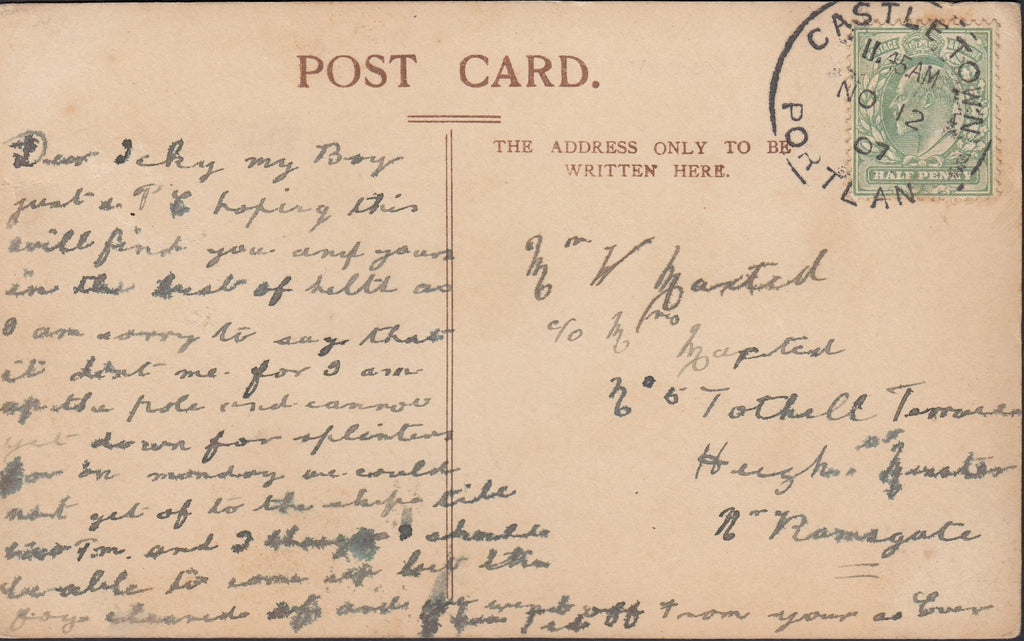 POST CARD.
THE ADDRESS ONLY TO BE
WRITTEN HERE.
CASTLETOWN
11.45 AM
NO 12
07
PORTLAN
HALF PENNY
Dear Icky my Boy
just a P C hoping this
will find you and yours
in the best of helth as
I am sorry to say that
it dont me. for I am
up the pole and cannot
get down for splinters
for on monday we could
not get of to the ships till
7 P.m. and I thought I should
be able to come up but the
fog cleared up and we went off
from your as Ever
Mr V Maxted
c/o Mrs Maxted
No 5 Tothell Terrace
Heigh
Nr Ramsgate